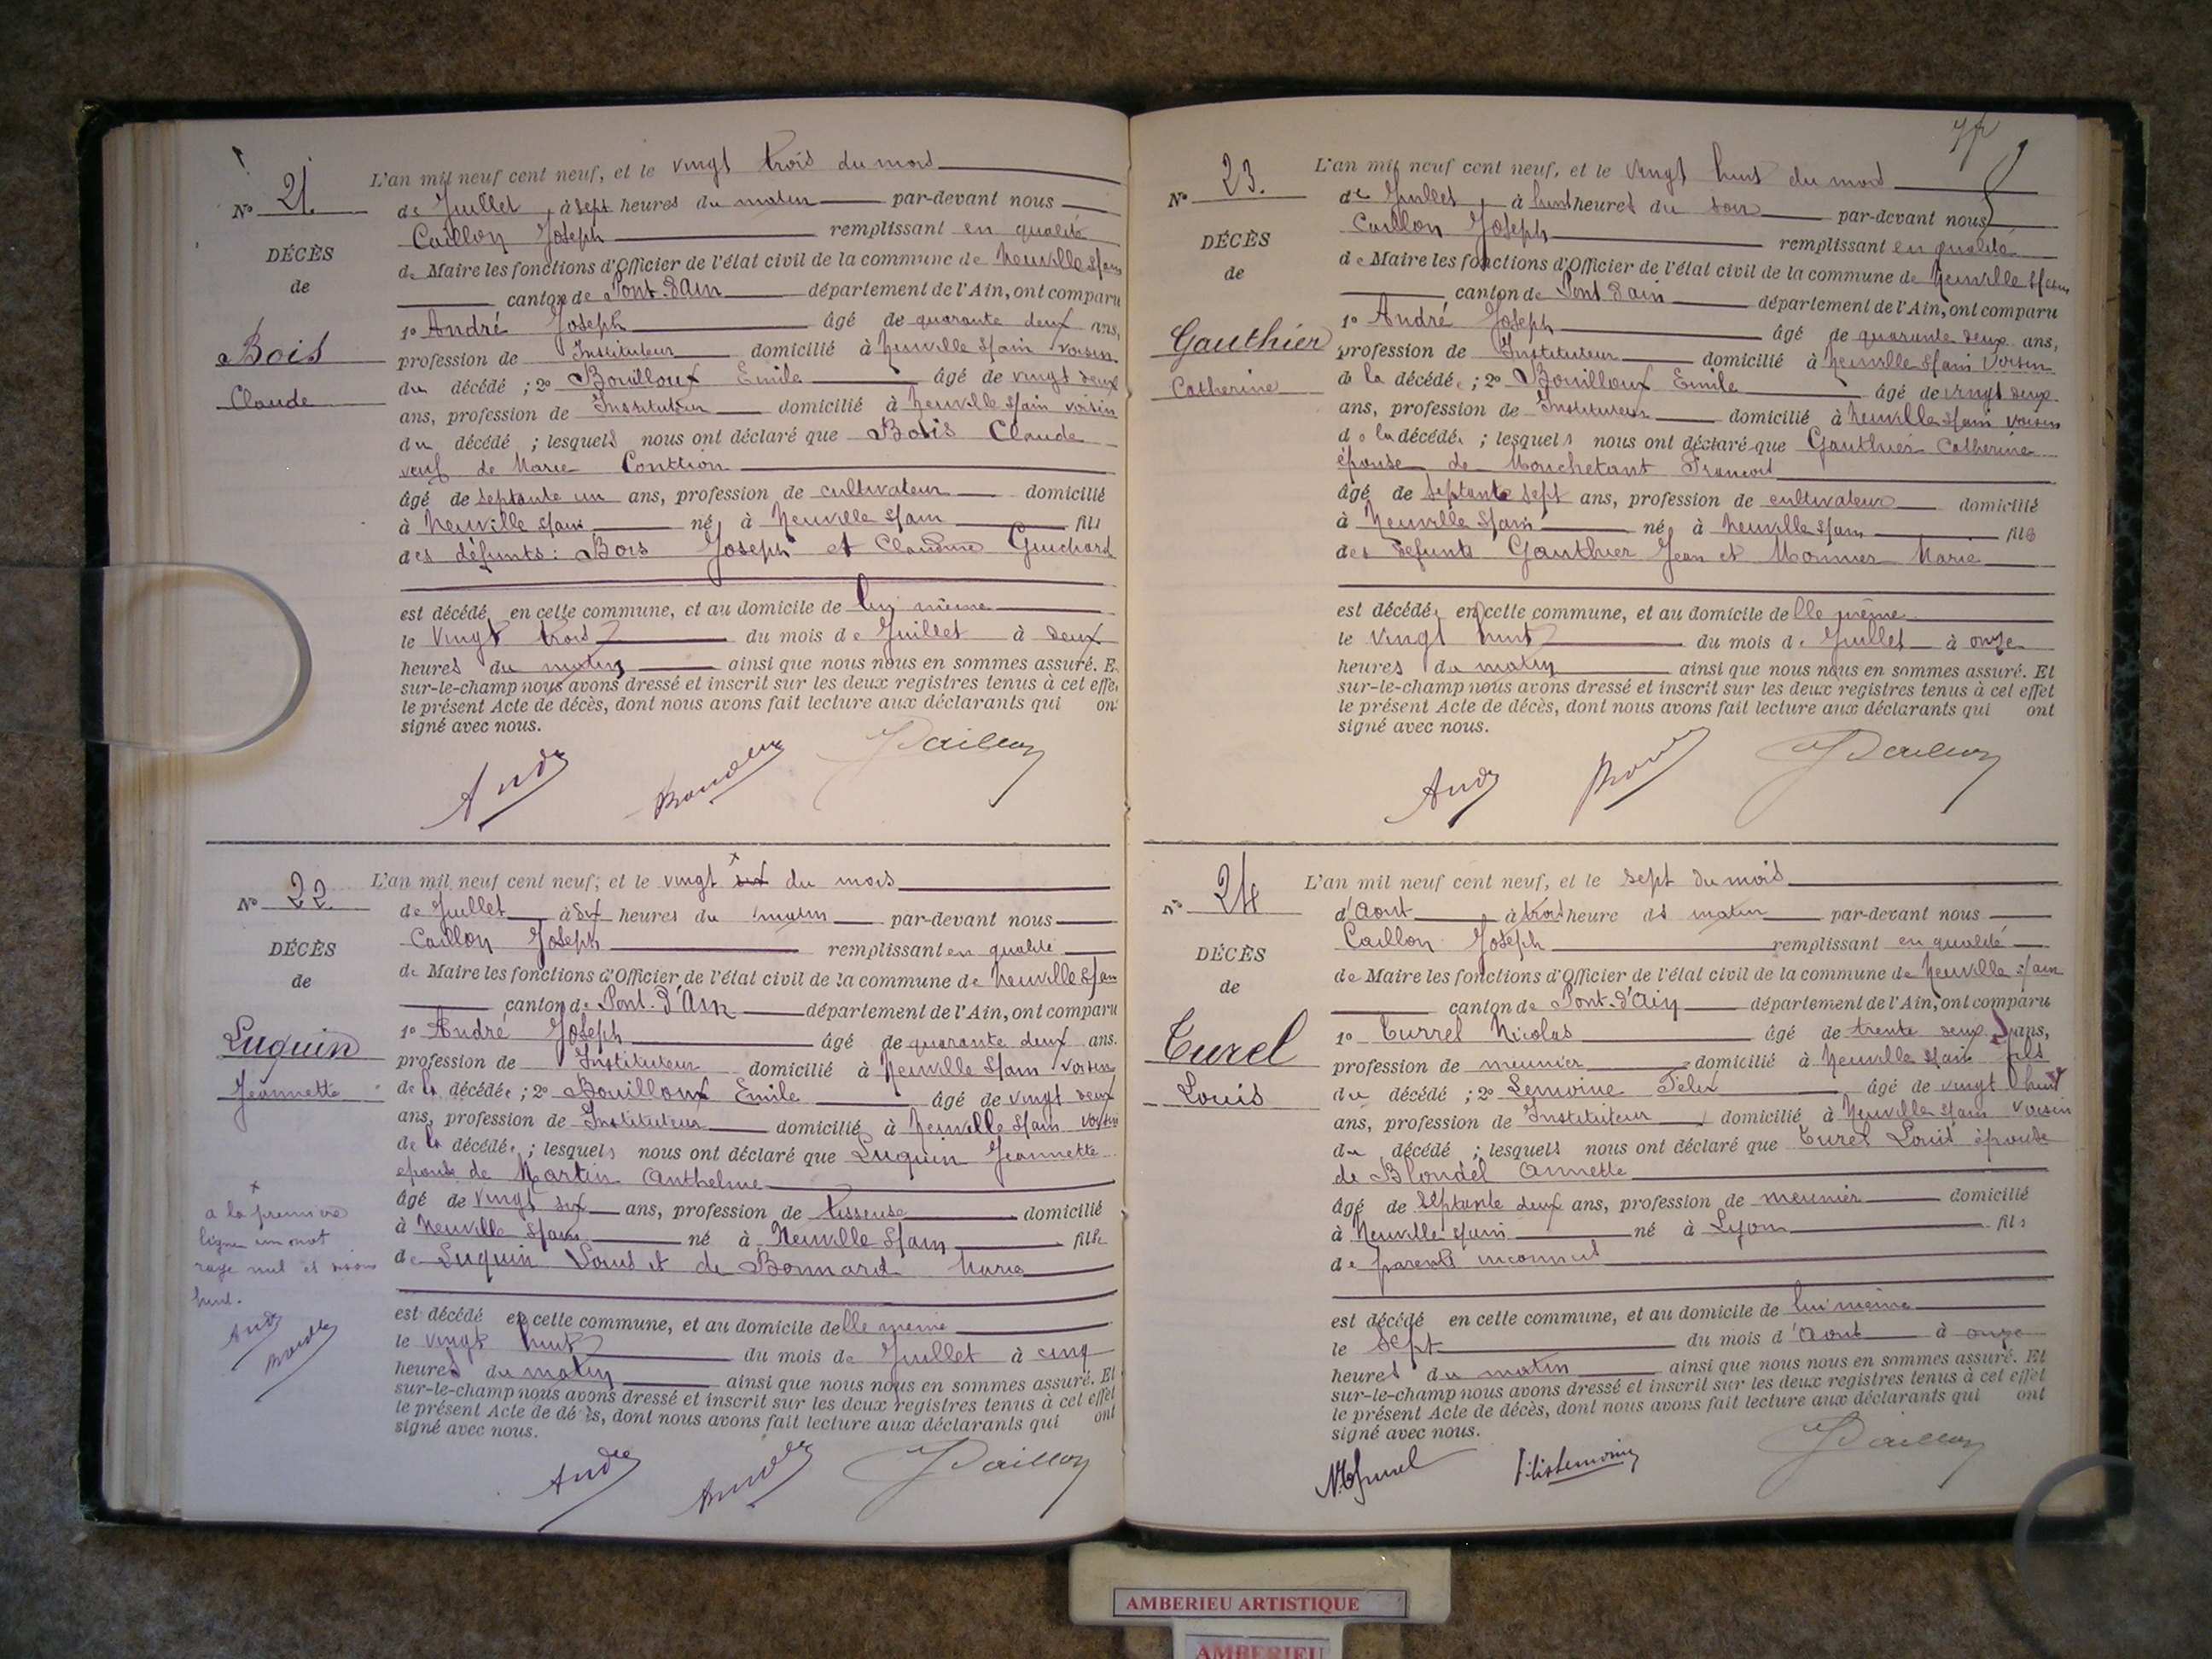 L'an mil neuf cent neuf, et le vingt trois du mois
No 21.
de Juillet, à sept heures du matin par-devant nous
Caillon Joseph remplissant en qualité
DÉCÈS
de Maire les fonctions d'Officier de l'état civil de la commune de Neuville s/ain
de
canton de Pont-d'Ain département de l'Ain, ont comparu
1º André Joseph âgé de quarante deux ans,
Bois
profession de Instituteur domicilié à Neuville s/ain voisin
du décédé ; 2º Bouilloux Emile âgé de vingt deux
Claude
ans, profession de Instituteur domicilié à Neuville s/ain voisin
du décédé ; lesquels nous ont déclaré que Bois Claude
veuf de Marie
âgé de septante un ans, profession de cultivateur domicilié
à Neuville s/ain né à Neuville s/ain fils
des défunts : Bois Joseph et Claudine Guichard
est décédé en cette commune, et au domicile de lui même
le vingt trois du mois de Juillet à deux
heures du matin ainsi que nous nous en sommes assuré. E
sur-le-champ nous avons dressé et inscrit sur les deux registres tenus à cet effe
le présent Acte de décès, dont nous avons fait lecture aux déclarants qui on
signé avec nous.
André JCaillon
L'an mil neuf cent neuf, et le vingt six du mois
No 22.
de Juillet à six heures du matin par-devant nous
Caillon Joseph remplissant en qualité
DÉCÈS
de Maire les fonctions d'Officier de l'état civil de la commune de Neuville s/ain
de
canton de Pont-d'Ain département de l'Ain, ont comparu
1º André Joseph âgé de quarante deux ans.
Luquin
profession de Instituteur domicilié à Neuville s/ain voisin
Jeannette
de la décédée ; 2º Bouilloux Emile âgé de vingt deux
ans, profession de Instituteur domicilié à Neuville s/ain voisin
de la décédée ; lesquels nous ont déclaré que Luquin Jeannette
épouse de Martin Anthelme
âgé de vingt six ans, profession de tisseuse domicilié
à Neuville s/ain né à Neuville s/ain fille
de Luquin Louis et de Bonnard Marie
x
a la première
ligne un mot
raye nul et
huit.
André
est décédé en cette commune, et au domicile de lle même
le vingt huit du mois de Juillet à cinq
heures du matin ainsi que nous nous en sommes assuré. Et
sur-le-champ nous avons dressé et inscrit sur les deux registres tenus à cet effet
le présent Acte de décès, dont nous avons fait lecture aux déclarants qui ont
signé avec nous.
André JCaillon
L'an mil neuf cent neuf, et le vingt huit du mois
No 23.
de Juillet, à huit heures du soir par-devant nous
Caillon Joseph remplissant en qualité
DÉCÈS
de Maire les fonctions d'Officier de l'état civil de la commune de Neuville s/ain
de
canton de Pont d'ain département de l'Ain, ont comparu
1º André Joseph âgé de quarante deux ans,
Gauthier
profession de Instituteur domicilié à Neuville s/ain voisin
Catherine
de la décédée ; 2º Bouilloux Emile âgé de vingt deux
ans, profession de Instituteur domicilié à Neuville s/ain voisin
de la décédée ; lesquels nous ont déclaré que Gauthier Catherine
épouse de Mouchetant François
âgé de septante sept ans, profession de cultivateur domicilié
à Neuville s/ain né à Neuville s/ain fils
des défunts Gauthier Jean et Monnier Marie
est décédée en cette commune, et au domicile de lle même
le vingt huit du mois de Juillet à onze
heures du matin ainsi que nous nous en sommes assuré. Et
sur-le-champ nous avons dressé et inscrit sur les deux registres tenus à cet effet
le présent Acte de décès, dont nous avons fait lecture aux déclarants qui ont
signé avec nous.
André JCaillon
L'an mil neuf cent neuf, et le sept du mois
No 24
d'Aout à trois heure ds matin par-devant nous
Caillon Joseph remplissant en qualité
DÉCÈS
de Maire les fonctions d'Officier de l'état civil de la commune de Neuville s/ain
de
canton de Pont-d'Ain département de l'Ain, ont comparu
1º Turrel Nicolas âgé de trente deux ans,
Turel
profession de meunier domicilié à Neuville s/ain fils
Louis
du décédé ; 2º Lemoine Félix âgé de vingt huit
ans, profession de Instituteur domicilié à Neuville s/ain voisin
du décédé ; lesquels nous ont déclaré que Turel Louis épouse
de Blondel Annette
âgé de septante deux ans, profession de meunier domicilié
à Neuville s/ain né à Lyon fils
de parents inconnus
est décédé en cette commune, et au domicile de lui même
le sept du mois d'Aout à onze
heures du matin ainsi que nous nous en sommes assuré. Et
sur-le-champ nous avons dressé et inscrit sur les deux registres tenus à cet effet
le présent Acte de décès, dont nous avons fait lecture aux déclarants qui ont
signé avec nous.
JCaillon
AMBERIEU ARTISTIQUE
AMBERIEU